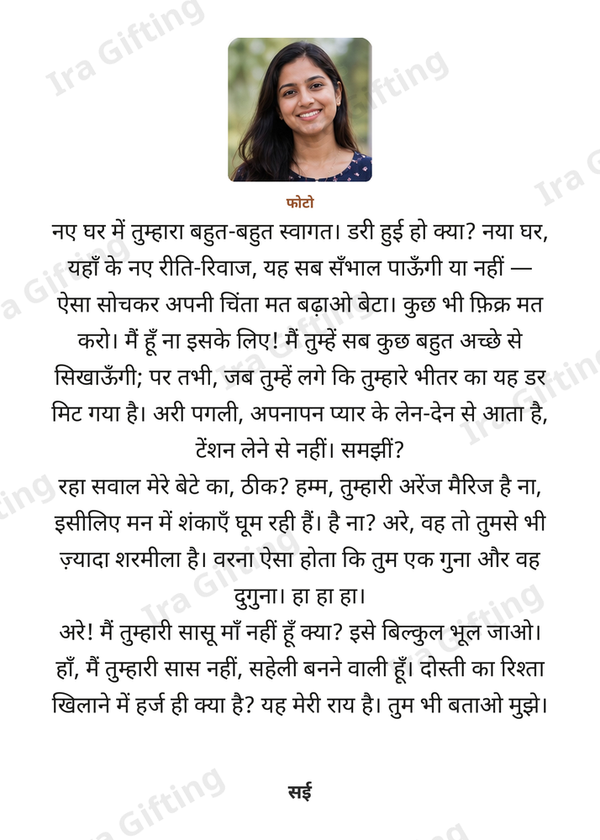 फोटो
नए घर में तुम्हारा बहुत-बहुत स्वागत। डरी हुई हो क्या? नया घर,
यहाँ के नए रीति-रिवाज, यह सब सँभाल पाऊँगी या नहीं —
ऐसा सोचकर अपनी चिंता मत बढ़ाओ बेटा। कुछ भी फ़िक्र मत
करो। मैं हूँ ना इसके लिए! मैं तुम्हें सब कुछ बहुत अच्छे से
सिखाऊँगी; पर तभी, जब तुम्हें लगे कि तुम्हारे भीतर का यह डर
मिट गया है। अरी पगली, अपनापन प्यार के लेन-देन से आता है,
टेंशन लेने से नहीं। समझीं?
रहा सवाल मेरे बेटे का, ठीक? हम्म, तुम्हारी अरेंज मैरिज है ना,
इसीलिए मन में शंकाएँ घूम रही हैं। है ना? अरे, वह तो तुमसे भी
ज़्यादा शरमीला है। वरना ऐसा होता कि तुम एक गुना और वह
दुगुना। हा हा हा।
अरे! मैं तुम्हारी सासू माँ नहीं हूँ क्या? इसे बिल्कुल भूल जाओ।
हाँ, मैं तुम्हारी सास नहीं, सहेली बनने वाली हूँ। दोस्ती का रिश्ता
खिलाने में हर्ज ही क्या है? यह मेरी राय है। तुम भी बताओ मुझे।
सई
Ira Gifting
Ira Gifting
Ira Gifting
Ira Gifting
Ira Gifting
Ira Gifting
Ira Gifting
Ira Gifting
Ira Gifting